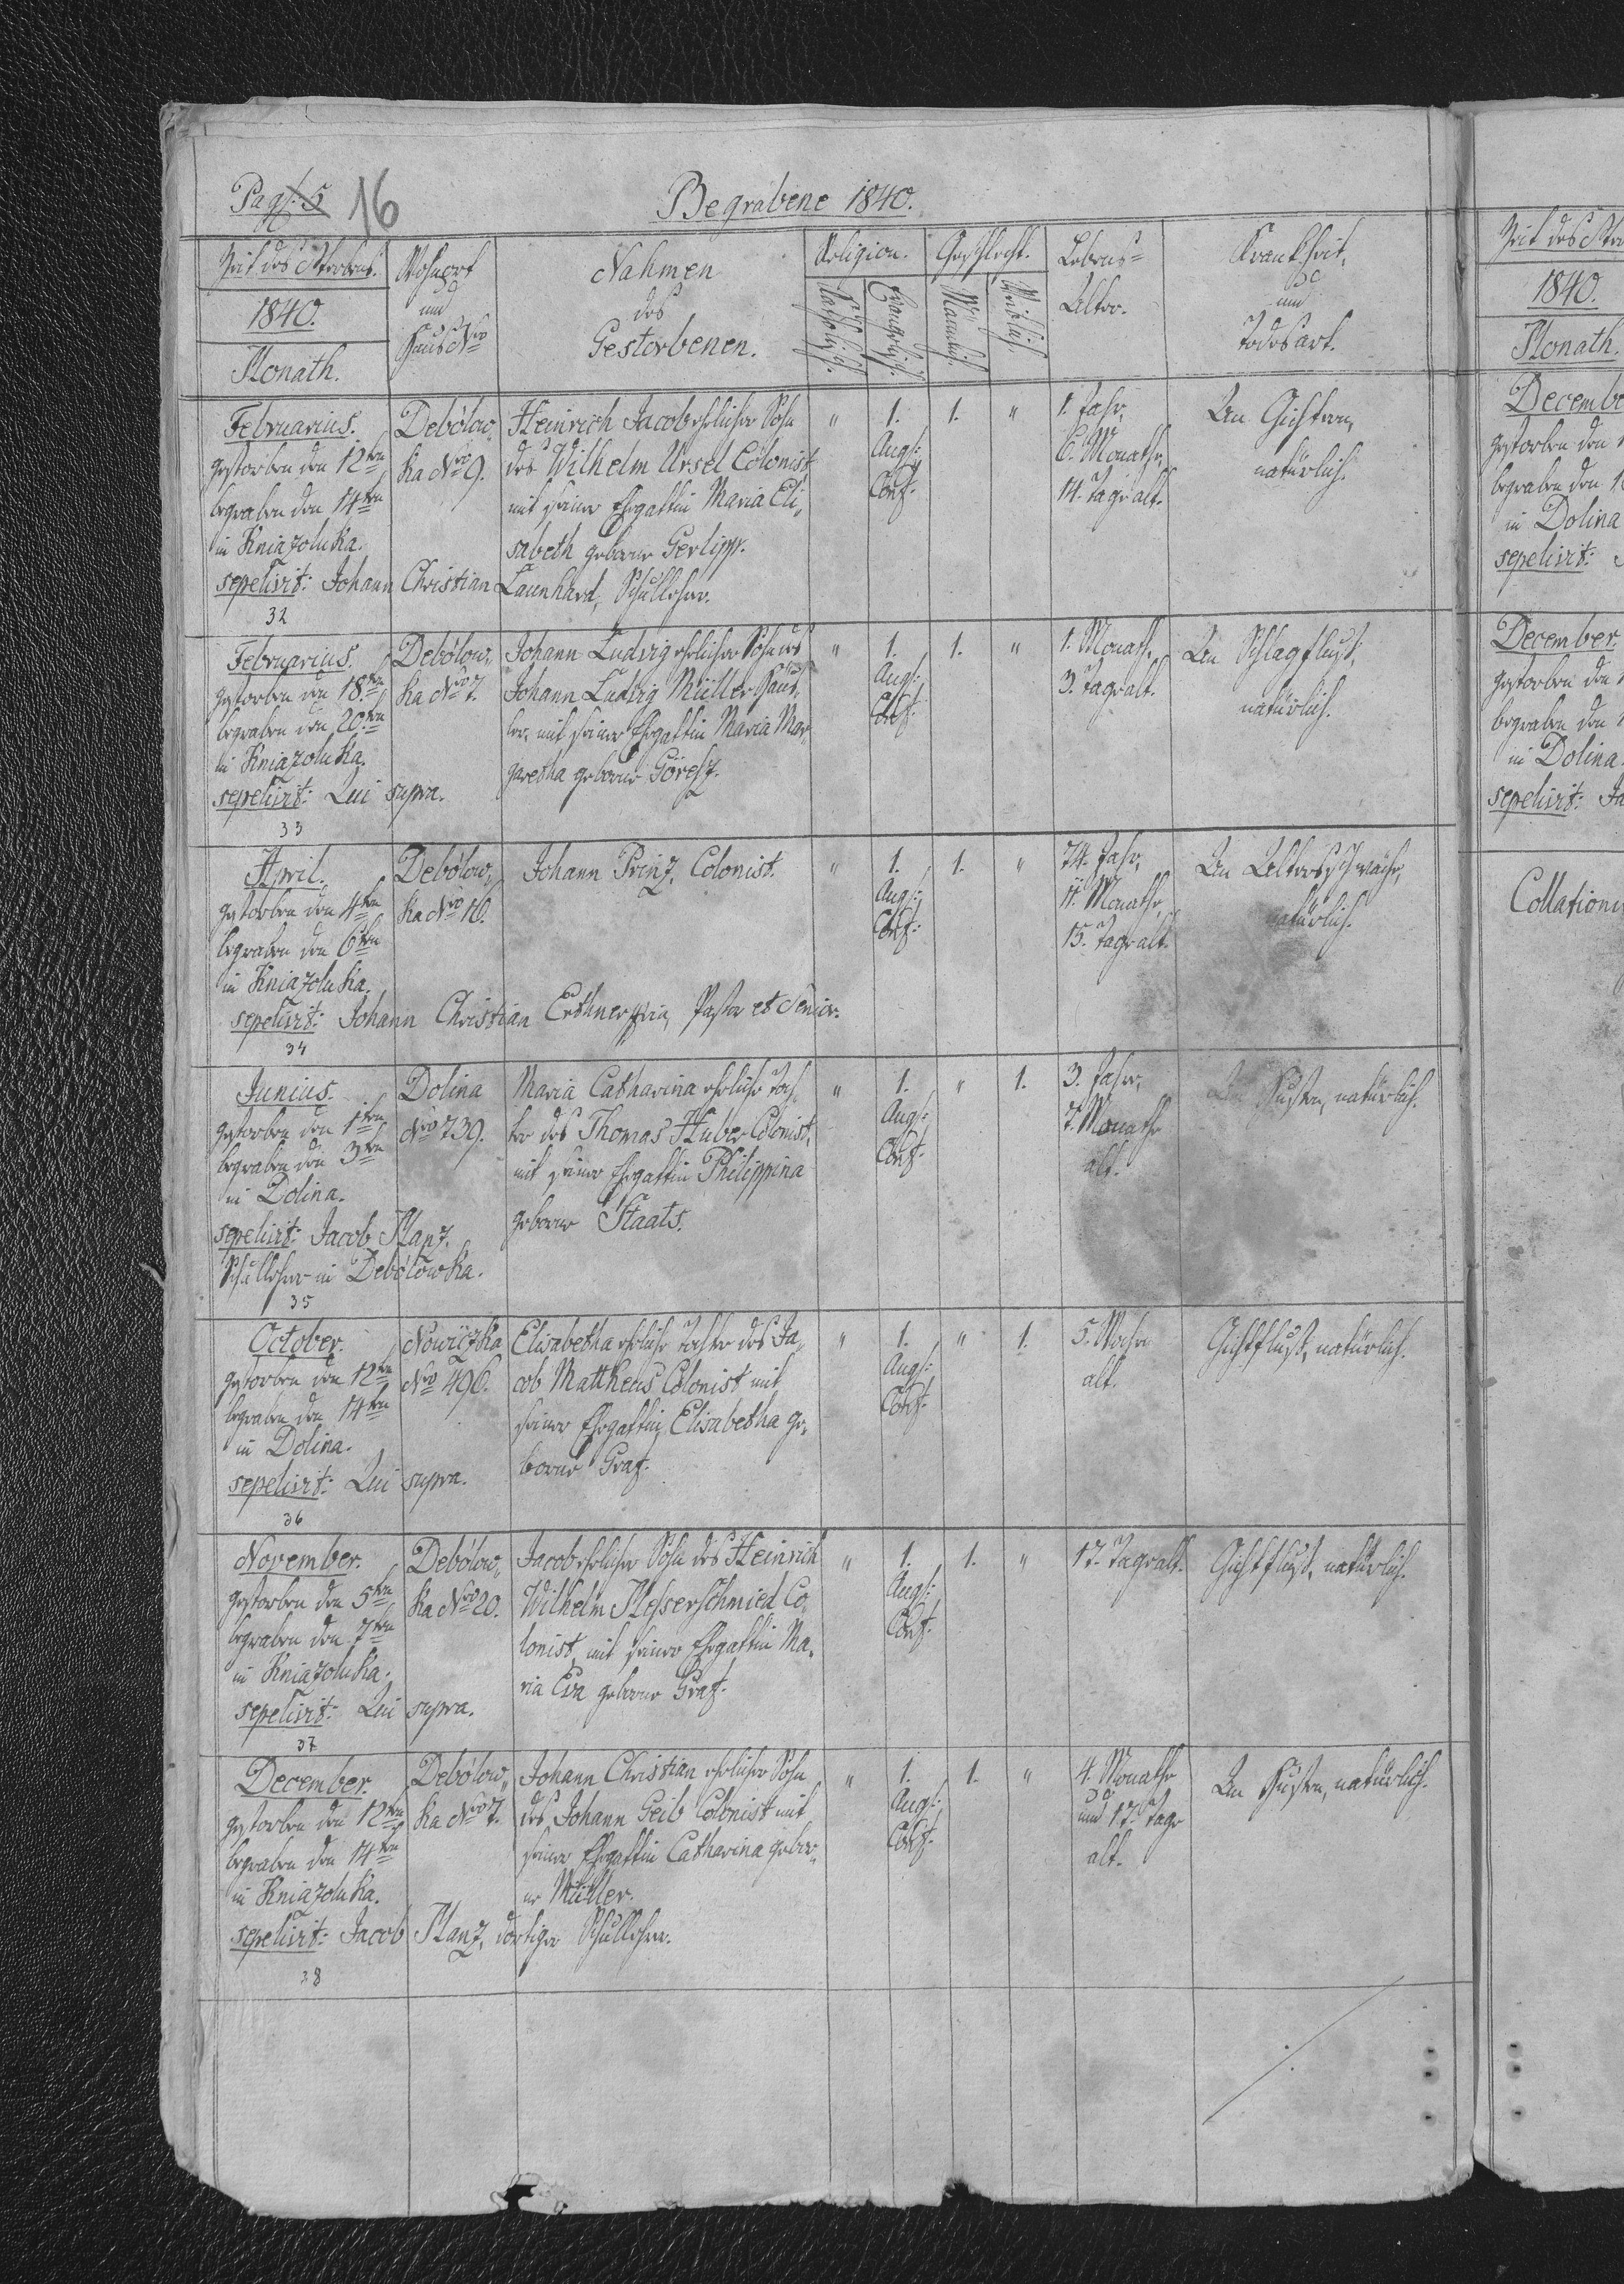 Pag: 5 16
Begrabene 1840.
Zeit des Sterbens.
1840.
Monath.
Wohnort
und
Haus Nro
Nahmen
des
Gestorbenen.
Religion.
Katholisch.
Evangelisch.
Geschlecht.
Männlich.
Weiblich.
Lebens=
Alter.
Krankheit,
und
Todesart.
Februarius.
gestorben den 12ten
begraben den 14ten
in Kniazoluka.
Debólow„
ka Nro 9.
Heinrich Jacob ehelicher Sohn
des Wilhelm Ursel Colonist,
mit seiner Ehegattin Maria Eli„
sabeth geborne Gerlipp.
sepelivit: Johann Christian Launhard, Schullehrer.
32
" 1. 1. "
Augs:
Conf.
1. Jahr,
6. Monathe,
14. Tage alt.
An Gichtern,
natürlich.
Februarius.
gestorben den 18ten
begraben den 20ten
in Kniazoluka.
sepelivit: Qui supra.
33
Debólow„
ka Nro 7.
Johann Ludwig ehelicher Sohn des
Johann Ludwig Müller Haus„
ler, mit seiner Ehegattin Maria Mar„
garetha geborne Göresz.
" 1. 1. "
Augs:
Conf.
1. Monath,
3. Tage alt.
An Schlagfluß,
natürlich.
April.
gestorben den 4ten
begraben den 6ten
in Kniazoluka.
Debólow„
ka Nro 16.
Johann Prinz, Colonist.
sepelivit: Johann Christian Pastor et Senior.
34
" 1. 1. "
Augs:
Conf:
74. Jahr,
11. Monathe,
15. Tage alt.
An Altersschwäche,
natürlich.
Junius.
gestorben den 1ten
begraben den 3ten
in Dolina.
sepelivit: Jacob Manz,
Schullehrer in Debólowka.
35
Dolina
Nro 739.
Maria Catharina eheliche Toch„
ter des Thomas Huber Colonist,
mit seiner Ehegattin Philippina
geborne Staats.
" 1. " 1.
Augs:
Conf.
3. Jahr,
7. Monathe
alt.
An Husten, natürlich.
October.
gestorben den 12ten
begraben den 14ten
in Dolina.
sepelivit: Qui supra.
36
Nowiczka
Nro 496.
Elisabetha eheliche Tochter des Ja„
cob Mattheus Colonist mit
seiner Ehegattin Elisabetha ge„
borne Graf.
" 1. " 1.
Augs:
Conf.
5. Wochen
alt.
Gichtfluß, natürlich.
November.
gestorben den 5ten
begraben den 7ten
in Kniazoluka.
sepelivit: Qui supra.
37
Debólow„
ka Nro 20.
Jacob ehelicher Sohn des Heinrich
Wilhelm Messerschmied Co„
lonist, mit seiner Ehegattin Ma„
ria Eva geborne Graf.
" 1. 1. "
Augs:
Conf.
17. Tage alt.
Gichtfluß, natürlich.
December.
gestorben den 12ten
begraben den 14ten
in Kniazoluka.
Debólow„
ka Nro 7.
Johann Christian ehelicher Sohn
des Johann Geib Colonist mit
seiner Ehegattin Catharina gebor„
ne Müller.
sepelivit: Jacob Manz, dortiger Schullehrer.
38
" 1. 1. "
Augs:
Conf.
4. Monathe
und 17. Tage
alt.
An Husten, natürlich.
1840.
Monath.
gestorben den
begraben den
in Dolina
sepelivit:
December.
gestorben den
begraben den
in Dolina.
sepelivit: Ja